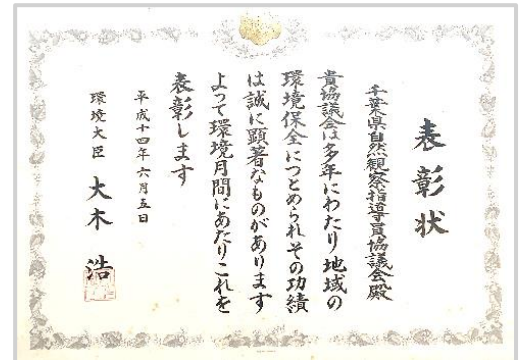 表彰状
千葉県自然観察指導員協議会殿
貴協議会は多年にわたり地域の
環境保全につとめられその功績
は誠に顕著なものがあります
よって環境月間にあたりこれを
表彰します
平成十四年六月五日
環境大臣 大木 浩